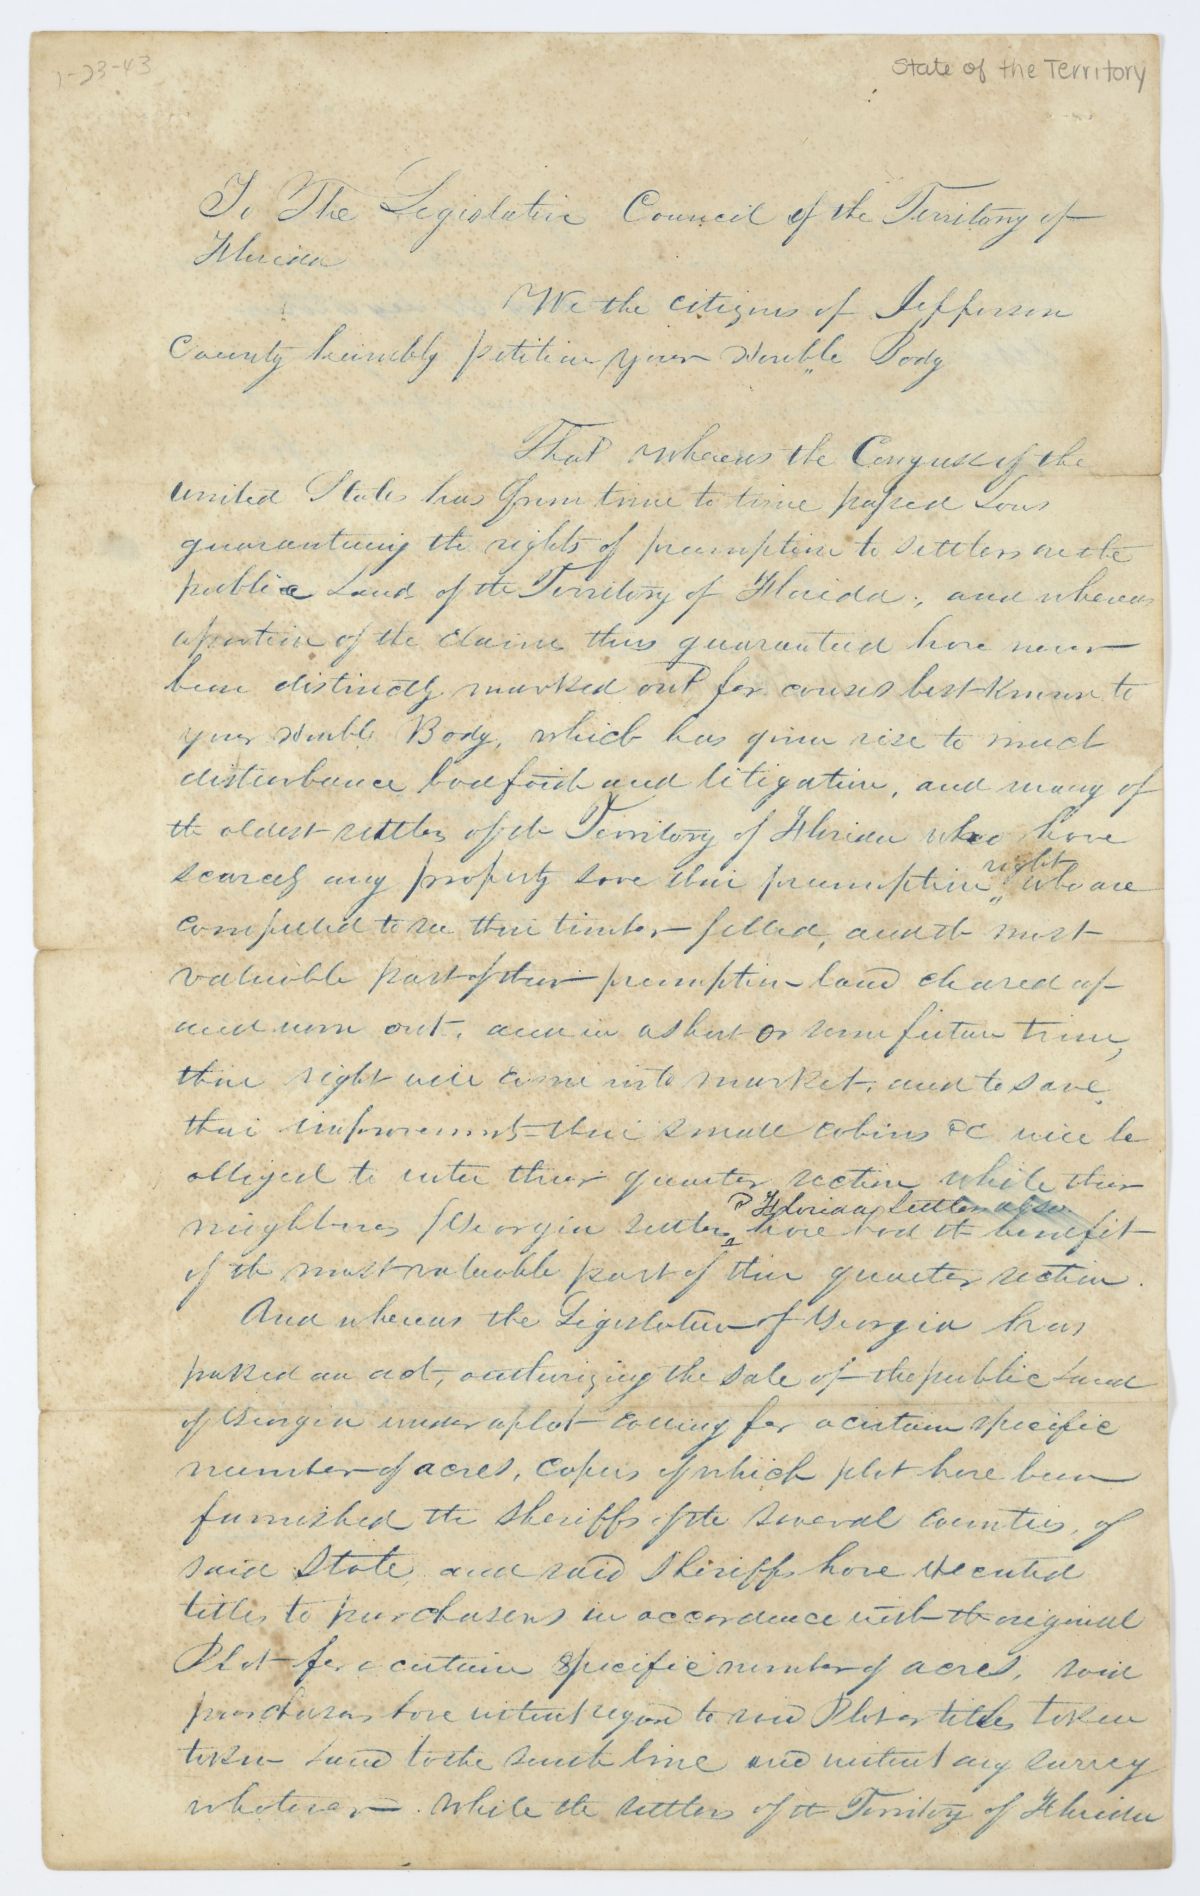 1-23-43
State of the Territory
To The Legislative Council of the Territory of
Florida
We the citizens of Jefferson
County humbly petition your Honble Body
That whereas the Congress of the
united States has from time to time passed Laws
guaranteeing the rights of preemption to settlers on the
public Lands of the Territory of Florida; and whereas
a portion of the claims thus guaranteed have never
been distinctly marked out for causes best known to
your Honble Body, which has given rise to much
disturbance bad faith and litigation, and many of
the oldest settlers of the Territory of Florida who have
scarcely any property save their preemption right who are
compelled to see their timber felled, and the most
valuable part of their preemption land cleared up
and worn out, and in a short or some future time,
their right will come into market, and to save
their improvements their small cabins &c will be
obliged to enter their quarter section while their
neighbours Georgia settlers & Florida Settlers also have had the benefit
of the most valuable part of their quarter section.
And whereas the Legislature of Georgia has
passed an act, authorizing the sale of the public Land
of Georgia under a plot calling for a certain specific
number of acres, copies of which plot have been
furnished the sheriffs of the several counties, of
said State, and said Sheriffs have executed
titles to purchasers in accordance with the original
Plot for a certain specific number of acres, said
purchasers have without regard to said Plot or titles taken
taken Land to the south line and without any survey
whatever. while the settlers of the Territory of Florida